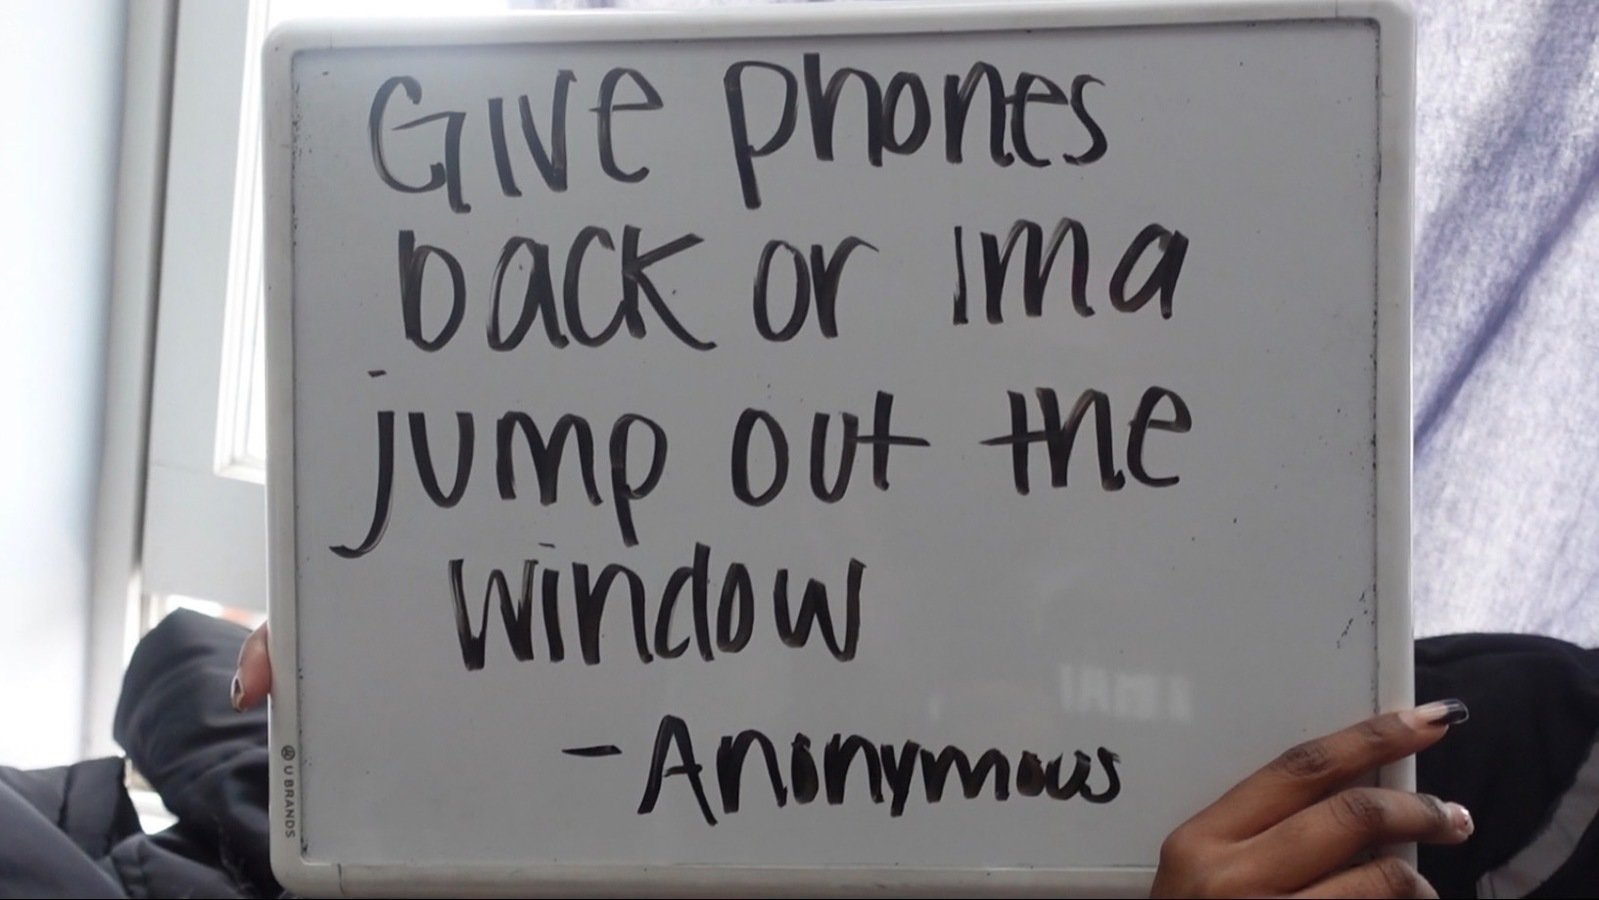 Give phones
back or ima
jump out the
window
- Anonymous
U BRANDS